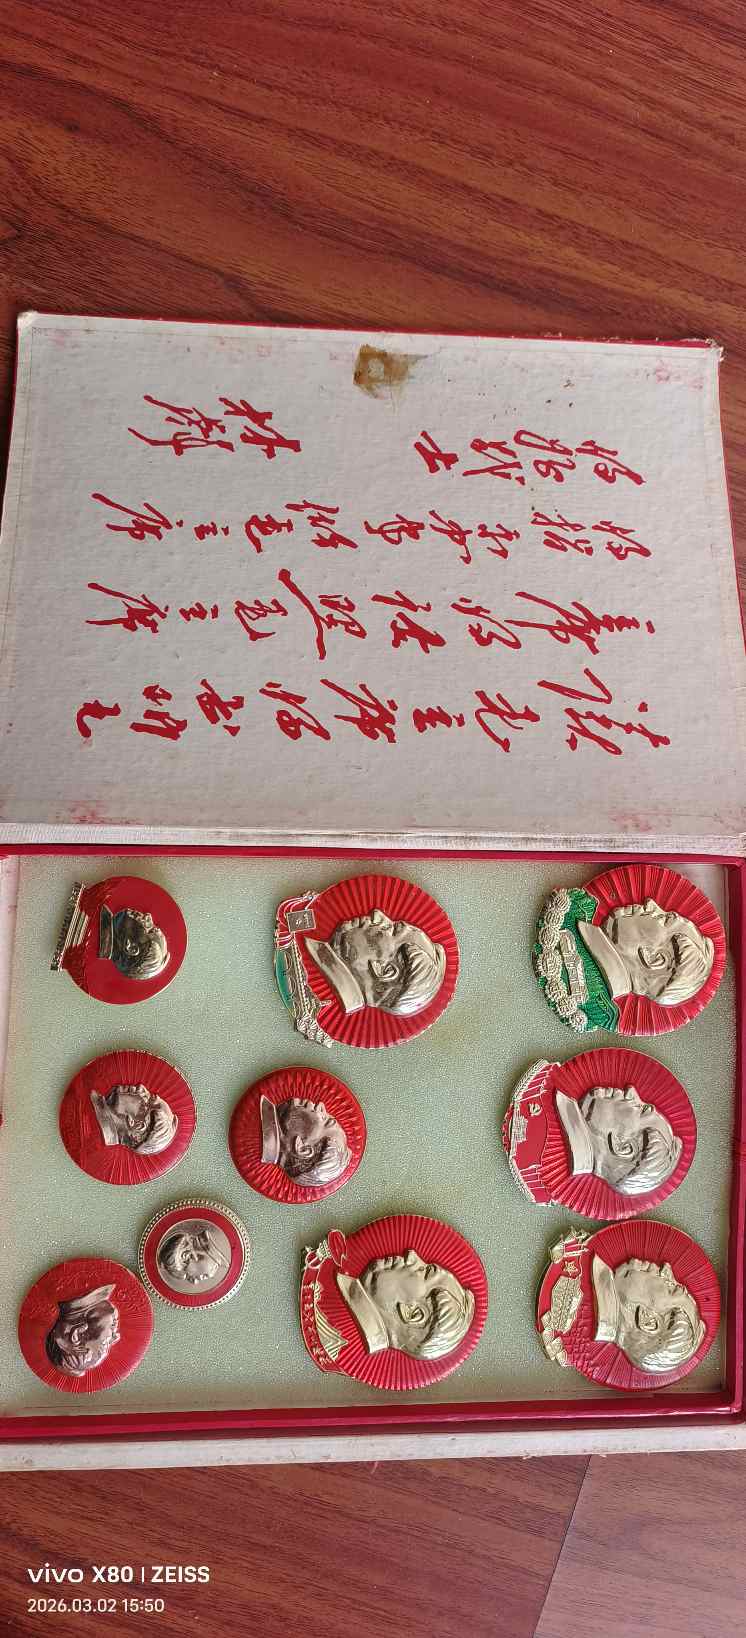 读毛主席的书听毛
主席的话照毛主席
的指示办事做毛主席
的好战士
林彪
vivo X80 | ZEISS
2026.03.02 15:50